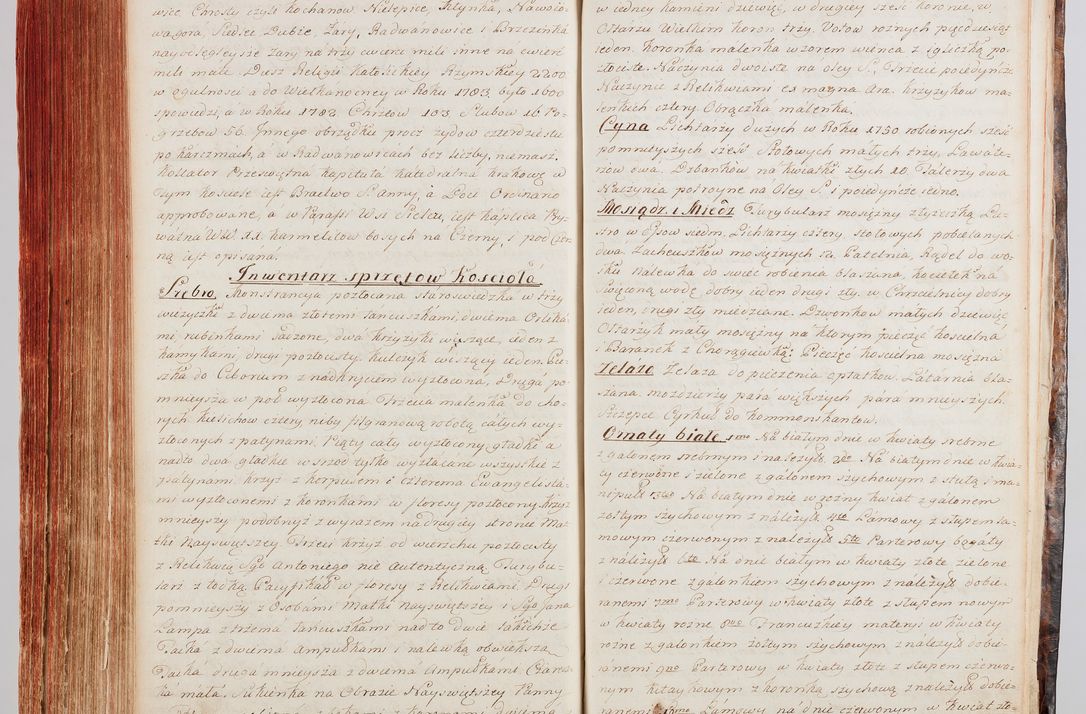 wice, Chrosle czyli Kochanow, Nielepice, Młynka, Nawoio-
wagora, Siedlec Dubie, Żary, Radwanowice i Brzezinka
nayodlegleysze Żary na trzy cwierci mili inne na cwierć
mili małe. Dusz Religii Katolickiey Rzymskiey 2200
w ogulnosci a do Wielkanocney w Roku 1783. było 1600
spowiedzi, a w Roku 1782 Chrztow 103 Slubow 16 Po-
grzebow 56. Innego obrządku procz zydow czterdziestu
po karczmach, a w Radwanowicach bez liczby, niemasz.
Kollator Przeswiętna Kapituła Katedralna Krakows: w
Tym kosciele iest Bractwo S. Anny, a Loci Ordinario
approbowane, a w Parafii W Siedlcu, iest Kaplica Pry-
watna WW. XX. Karmelitow bosych na Czerny, i pod Czer-
ną iest opisana.
Inwentarz sprzętow Kościoła
Srebro, Monstrancya pozłocana staroswiecka w trzy
wieżyczki z dwiema złotemi łancuszkami, dwiema Orlika-
mi, rubinkami sadzone, dwa krzyżyki wiszące, ieden z
kamykami, drugi pozłocisty, kulczyk wiszący ieden. Pu-
szka do Ciborium z nadkryciem wyzłocona, Druga po-
mnieysza w poł wyzłocona Trzecia malenka do cho-
rych kielichow cztery, niby filgranową robotą całych wy-
złoconych z patynami, Piąty cały wyzłocony, gładki a
nadto dwa gładkie w srzod tylko wyzłacane wszystkie z
patynami krzyż z korpusem i czterema Ewangelista-
mi wyzłoconemi z koronkami w floresy pozłocony, krzyż
mnieyszy podobnyż z wyrazem na drugiey stronie Mat-
tki Nayswiętszey Trzeci krzyż od wierzchu pozłocisty
z Relikwią Sgo Antoniego nie autentyczną, Turybu-
larz z łodką Pacyfikał w floresy z Relikwiami, Drugi
pomnieyszy z Osobami Matki Nayswiętszey i Sgo Jana
Lampa z trzema łancuszkami nadto dwie takichże
Tacka z dwiema ampułkami i nalewką obwiększa
Tacka druga mnieysza z dwiema ampułkami, Czar-
ka mała. Sukienka na Obrazie Nayswiętszey Panny
w iedney kamieni dziewięć, w drugiey szesć koronie, w
Ołtarzu Wielkim koron trzy, Votow roznych pięćdziesiąt
ieden. Koronka malenka wzorem wienca z igliczką po-
złociste. Naczynia dwoiste na oley S. Trzecie poiedyncze
Naczynie z Relikwiami ex magna Ara. krzyżykow ma-
łenkich cztery Obrączka malenka.
Cyna Lichtarzy dużych w Roku 1780 robionych szesć
pomnieyszych sześć stołowych małych trzy, Lawate-
rzow dwa. Dzbankow na kwiatki złych 10. Talerzy dwa
Naczynia potroyne na Oley S. i poiedyncze iedno.
Mosiądz i Miedź Turybularz mosiężny złyżeczką, Lu-
stro w Osow siedm, Lichtarzy cztery, stołowych pobielanych
dwa, Zacheuszkow mosiężnych 12. Patelnia, Rądel do wo-
sku nalewka do swiec robienia blaszana, kociełek na
swięconą wodę dobry ieden drugi zły. w Chrzcielnicy dobry
ieden, drugi zły miedziane. Dzwonkow małych dziewięć
Ołtarzyk mały mosiężny na ktorym pieczęć koscielna
i Baranek z Chorągiewką: Pieczęć koscielna mosiężna
Żelazo Żelaza do pieczenia opłatkow. Latarnia bla-
szana, mozdzierzy para większych para mnieyszych.
Szczypce Cyrkuł do kommonikantow.
Ornaty białe 1mo Na białym dnie w kwiaty srebrne
z galonem srebrnym i należyt: 2do Na białym dnie w kwia-
ty czerwone i zielone z galonem szychowym z stułą i ma-
nipul: 3tio Na białym dnie w rozny kwiat z galonem
żołtym szychowym z należyt: 4to Lamowy z słupem la-
mowym czerwonym z należyt: 5to Parterowy bogaty
z należyt: 6to Na dnie białym w kwiaty złote zielone
i czerwone z galonkiem szychowym z należyt: dobie-
ranemi 7mo Parterowy w kwiaty złote z słupem nowym
w kwiaty rozne 8vo Francuskiey materyi w kwiaty
rozne z galonkiem żołtym szychowym z należyt: dobie-
ranemi 9no Parterowy w kwiaty złote z słupem czerwo-
nym kitaykowym z koronką szychową z należyt: dobie-
ranemi 10mo Lamowy na dnie czerwonym w kwiat zło-